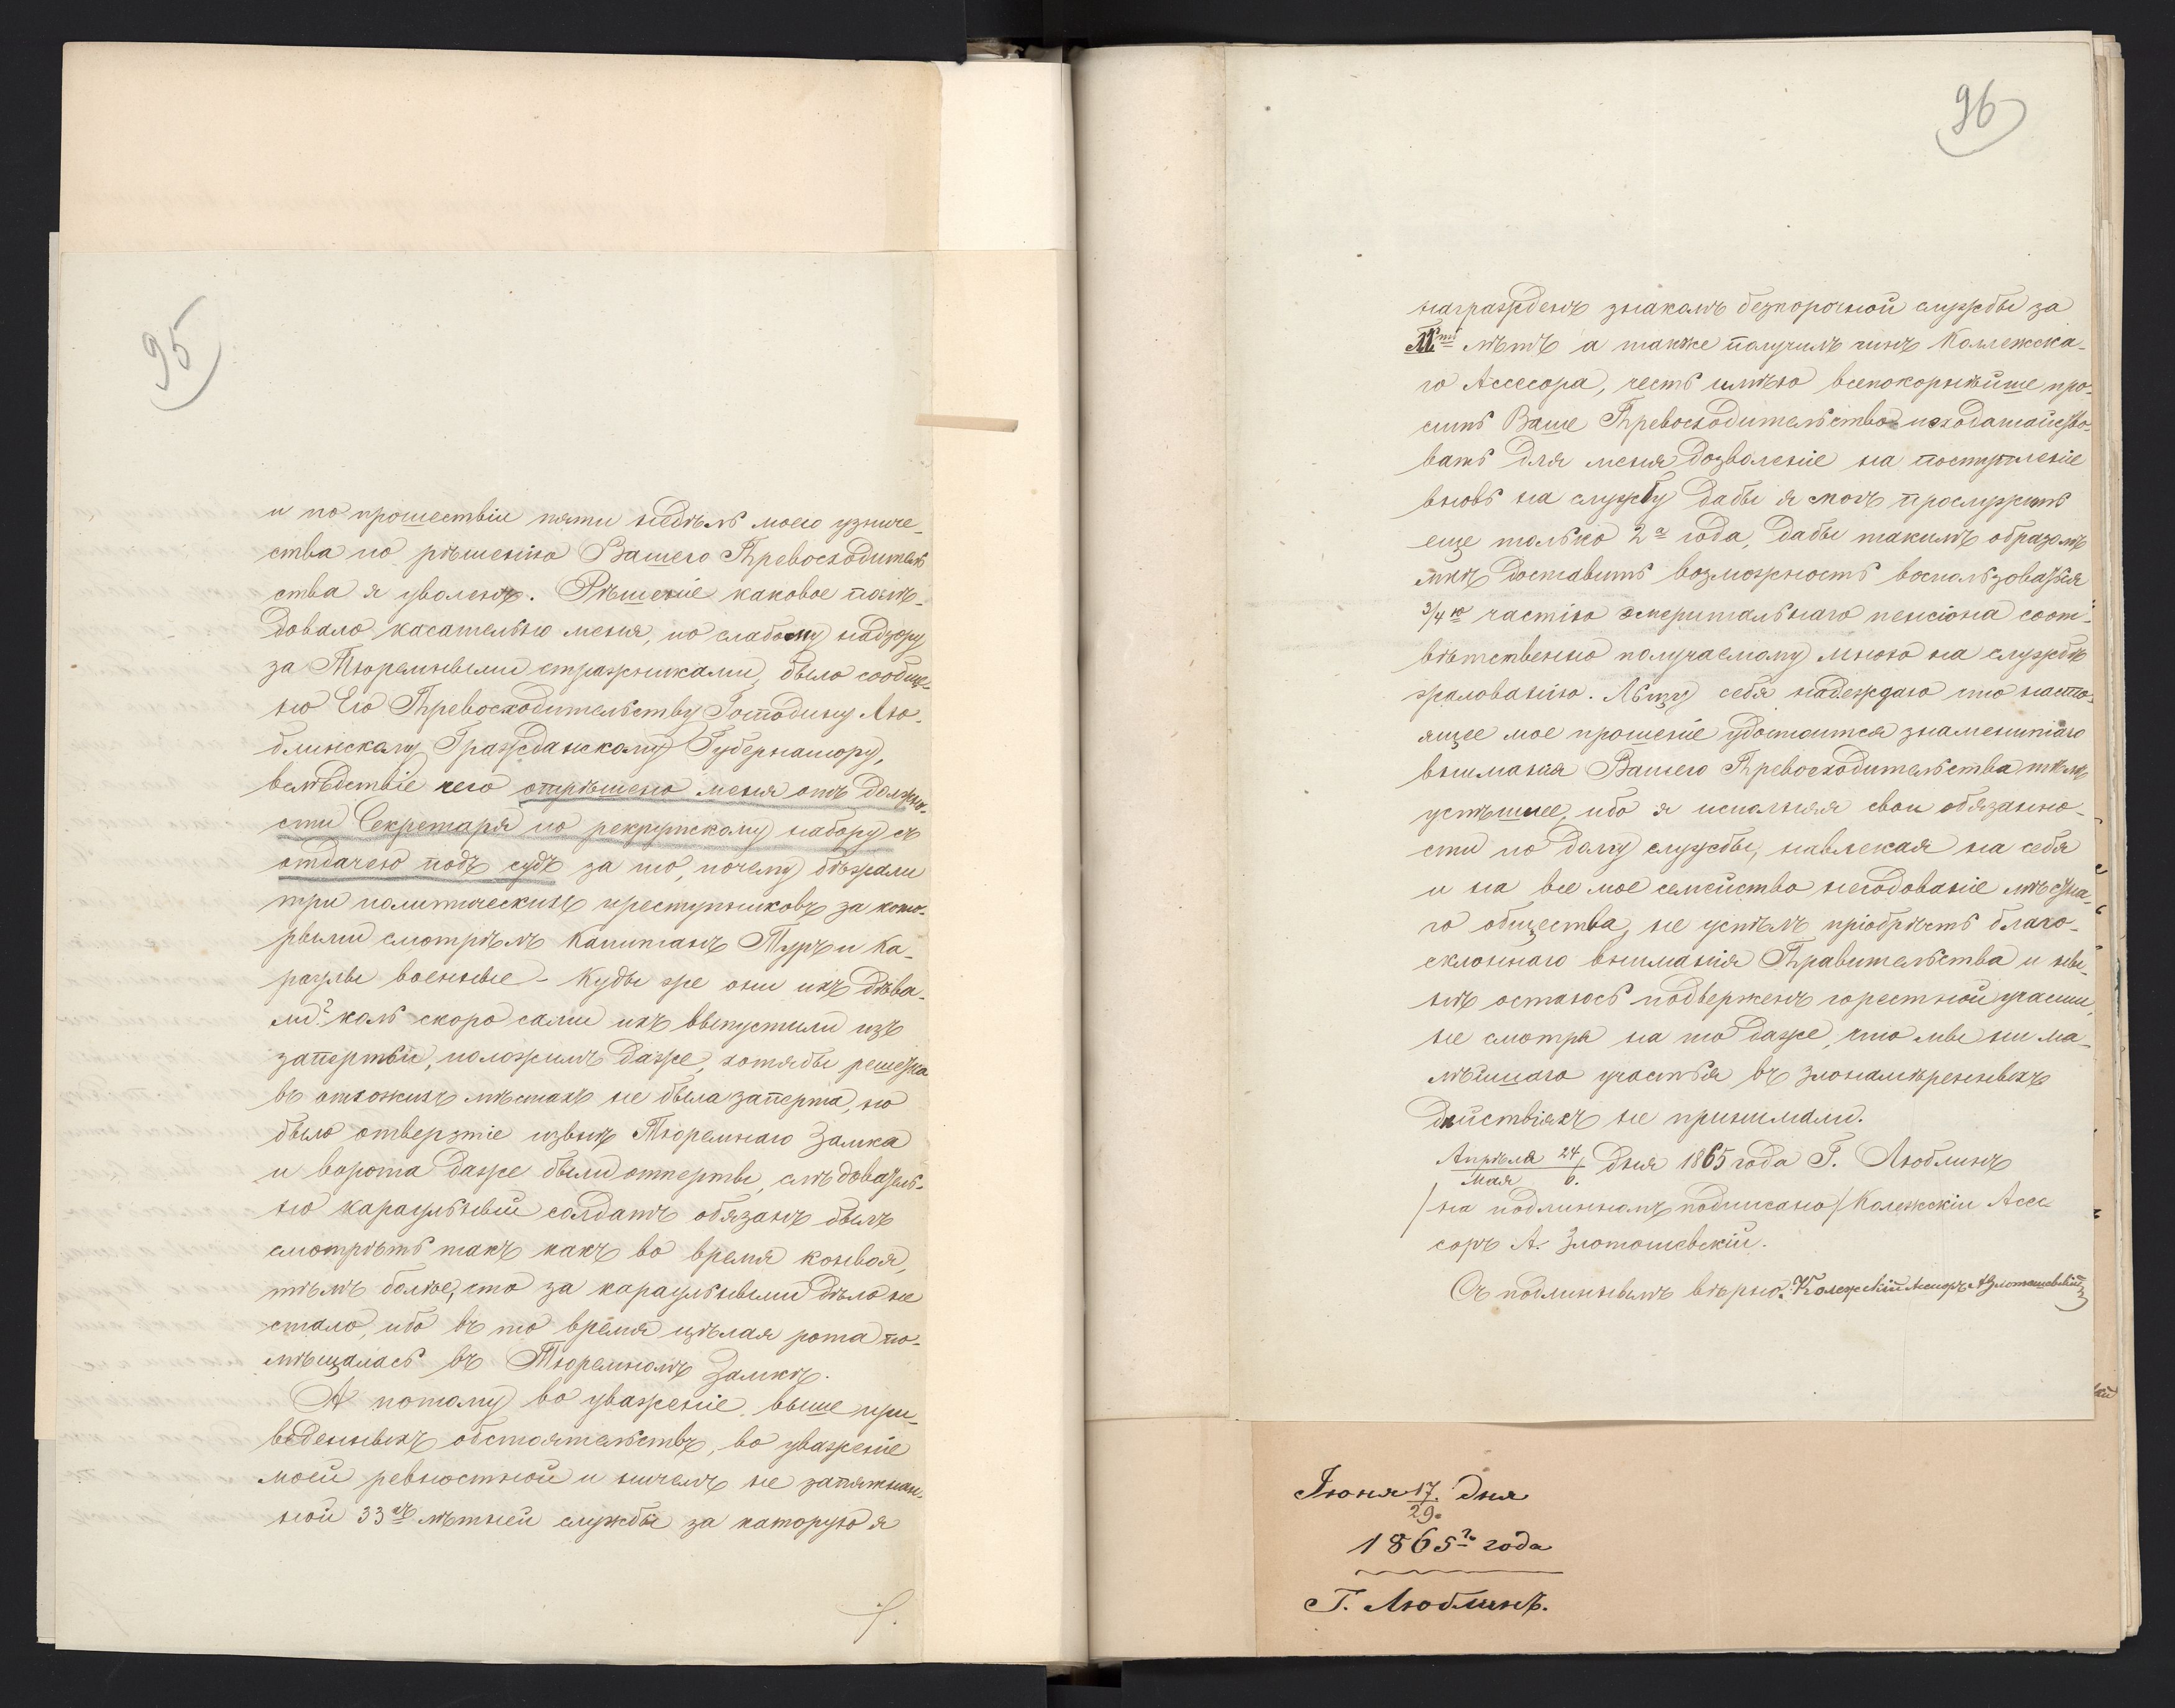 95
и по прошествіи пяти недѣль моего узниче-
ства по рѣшенію Вашего Превосходитель
ства я уволенъ. Рѣшеніе каковое послѣ-
довало касательно меня, по слабому надзору
за Тюремными стражниками, было сообще-
но Его Превосходительству Господину Лю-
блинскому Гражданскому Губернатору,
вслѣдствіе чего отрѣшено меня отъ должно-
сти Секретаря по рекрутскому набору съ
отдачею подъ судъ за то, почему бѣжали
три политическихъ преступниковъ за кото-
рыми смотрѣлъ Капитанъ Туръ и Ка-
раулы военные - Куды же они ихъ дѣва-
ли? коль скоро сами ихъ выпустили изъ
заперти, положимъ даже, хотябы решетка
въ отхожихъ мѣстахъ не была заперта, но
было отверзтіе извнѣ Тюремнаго Замка
и ворота даже были отперты, слѣдователь-
но караульный солдатъ обязанъ былъ
смотрѣть такъ какъ во время конвоя,
тѣмъ болѣе, что за караульными дѣло не
стало, ибо въ то время цѣлая рота по-
мѣщалась въ Тюремномъ Замкѣ.
А потому во уваженіе выше при-
веденныхъ обстоятельствъ, во уваженіе
моей ревностной и ничемъ не запятнан-
ной 33хъ лѣтней службы за каторую я
96
награжденъ знакомъ безпорочной службы за
лѣтъ а также получилъ чинъ Коллежска-
го Ассесора, честь имѣю всепокорнѣйше про-
сить Ваше Превосходительство исходатайство-
вать для меня дозволеніе на поступленіе
вновь на службу дабы я могъ прослужить
еще только 2а года, дабы такимъ образомъ
мнѣ доставить возможность воспользоваться
3/4ю частію эмеритальнаго пенсіона соот-
вѣтственно получаемому мною на службѣ
жалованію. Льщу себя надеждаю что насто-
ящее мое прошеніе удостоится знаменитаго
вниманія Вашего Превосходительства тѣмъ
успѣшнее, ибо я исполняя свои обязанно-
сти по долгу службы, навлекая на себя
и на все мое семейство негодованіе мѣстна-
го общества, не успѣлъ пріобрѣсть благо-
склоннаго вниманія Правительства и ны-
нѣ остаюсь подверженъ горестной участи,
не смотря на то даже, что мы ни ма-
лѣйшаго участья въ злонамѣренныхъ
дѣйствіяхъ не принимали.
Апрѣля 24/Мая 6. дня 1865 года Г. Люблинъ
/на подлинномъ подписано/ Колежскій Ассе
соръ А. Злотошевскій.
Съ подлиннымъ вѣрно: Колежскій Ассесоръ А Злотошевскій
Іюня 17./29. дня
1865го года
Г. Люблинъ.